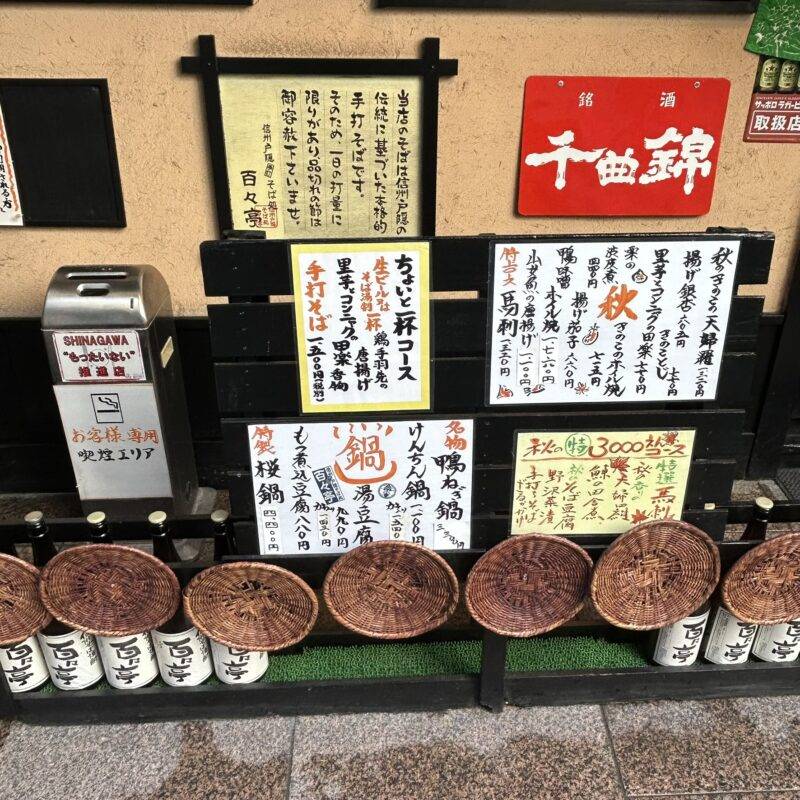 当店のそばは信州戸隠の
伝統に基づいた本格的
手打そばです。
そのため、一日の打量に
限りがあり品切れの節は
御容赦下さいませ。
信州戸隠
そば処
百々亭
銘酒
千曲錦
サッポロラガービール
取扱店
SHINAGAWA
"もったいない"
推進店
お客様専用
喫煙エリア
ちょいと一杯コース
生ビール又は
そば湯割
一杯
鶏手羽先の
唐揚げ
里芋とコンニャクの
田楽
香物
手打そば
一五〇〇円(税別)
秋のきのこの天婦羅
一三二〇円
揚げ銀杏 六〇五円
里芋とコンニャクの田楽 七七〇円
栗の
渋皮煮
四四〇円
秋
きのこのホイル焼
七一五円
鴨味噌
ホイル焼
一七六〇円
揚げ茄子
六六〇円
小女魚の唐揚げ
一一〇〇円
特上ロース
馬刺
一三二〇円
名物
鴨ねぎ鍋
けんちん鍋
一一〇〇円
鍋
湯豆腐
九九〇円
百々亭
もつ煮込豆腐
八八〇円
特製
桜鍋
四一四〇円
秋の特3000コース
特選
馬刺
野沢菜漬
手打そば
百々亭
百々亭
百々亭
百々亭
百々亭
百々亭
百々亭
百々亭